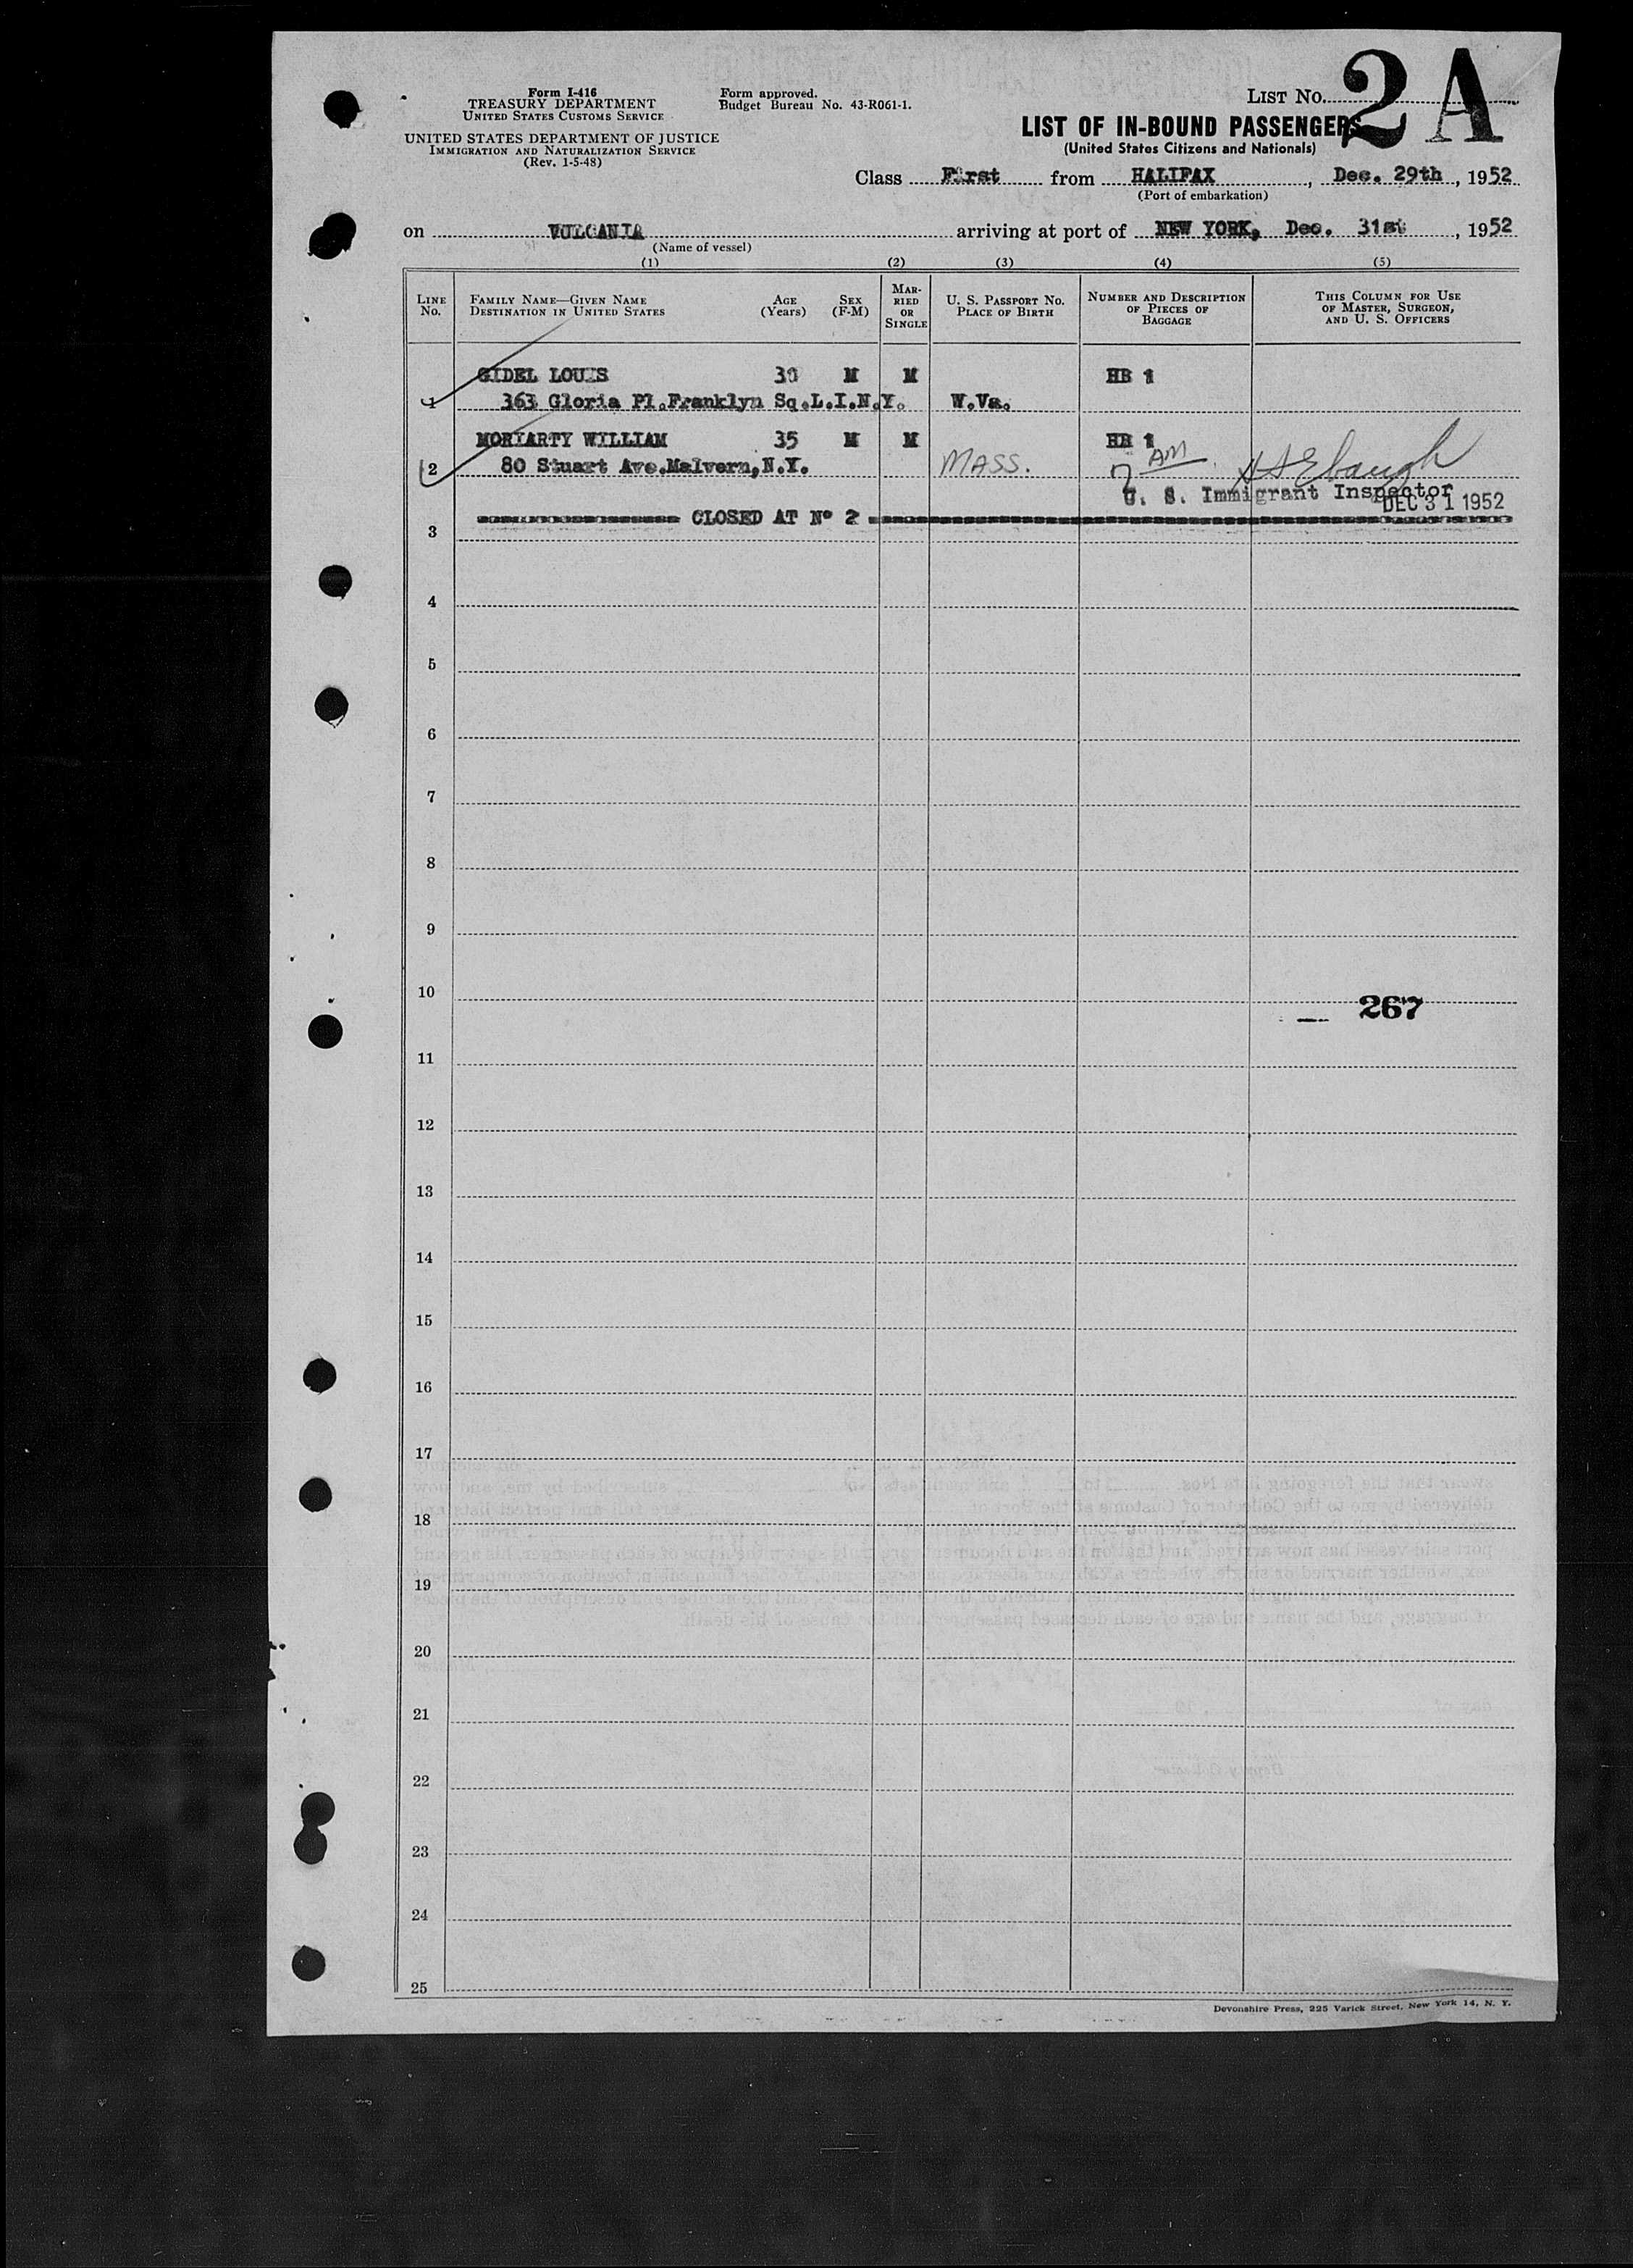 LIST No. 2 A
Form I-416
TREASURY DEPARTMENT
UNITED STATES CUSTOMS SERVICE
UNITED STATES DEPARTMENT OF JUSTICE
IMMIGRATION AND NATURALIZATION SERVICE
(Rev. 1-5-48)
Form approved.
Budget Bureau No. 43-R061-1.
LIST OF IN-BOUND PASSENGERS
(United States Citizens and Nationals)
Class First from HALIFAX, Dec. 29th, 1952
(Port of embarkation)
on VULCANIA arriving at port of NEW YORK, Dec. 31st, 1952
(Name of vessel)
(1) (2) (3) (4) (5)
LINE No. FAMILY NAME—GIVEN NAME DESTINATION IN UNITED STATES AGE (Years) SEX (F-M) MARRIED OR SINGLE U. S. PASSPORT NO. PLACE OF BIRTH NUMBER AND DESCRIPTION OF PIECES OF BAGGAGE THIS COLUMN FOR USE OF MASTER, SURGEON, AND U. S. OFFICERS
GIDEL LOUIS 30 M M HB 1
1 363 Gloria Pl.Franklyn Sq.L.I.N.Y. W.Va.
MORIARTY WILLIAM 35 M M HB 1
2 80 Stuart Ave.Malvern,N.Y. MASS. AM
U. S. Immigrant Inspector
DEC 31 1952
CLOSED AT Nº 2
3
4
5
6
7
8
9
10
267
11
12
13
14
15
16
17
18
19
20
21
22
23
24
25
Devonshire Press, 225 Varick Street, New York 14, N. Y.